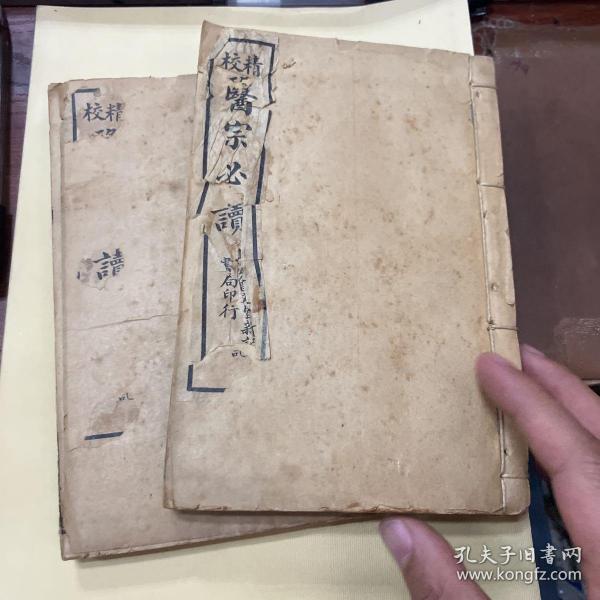 精校
醫宗必讀
書局印行
精校
讀
孔夫子旧书网
www.kongfz.com